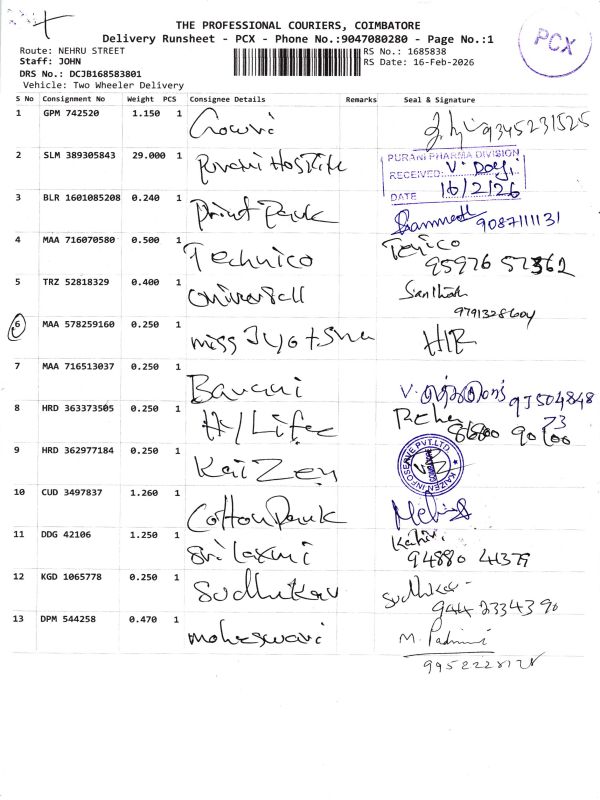 THE PROFESSIONAL COURIERS, COIMBATORE
Delivery Runsheet - PCX - Phone No.:9047080280 - Page No.:1
PCX
Route: NEHRU STREET
RS No.: 1685838
Staff: JOHN
RS Date: 16-Feb-2026
DRS No.: DCJB168583801
Vehicle: Two Wheeler Delivery
S No Consignment No Weight PCS Consignee Details Remarks Seal & Signature
1 GPM 742520 1.150 1 9345231525
2 SLM 389305843 29.000 1
PURANI PHARMA DIVISION
RECEIVED:
DATE 16/2/26
3 BLR 1601085208 0.240 1 9087111131
4 MAA 716070580 0.500 1 Technico
5 TRZ 52818329 0.400 1 Universall Santhosh
6 MAA 578259160 0.250 1 miss Jyotsna H/R
7 MAA 716513037 0.250 1 Bavani
8 HRD 363373505 0.250 1 H/Life
9 HRD 362977184 0.250 1 KaiZen KAIZEN INFOSERVE PVT.LTD
10 CUD 3497837 1.260 1
11 DDG 42106 1.250 1 Sri laxmi
94880 41379
12 KGD 1065778 0.250 1 Sudhikar Sudhikar
944 2334390
13 DPM 544258 0.470 1 moheswari M. Padmini